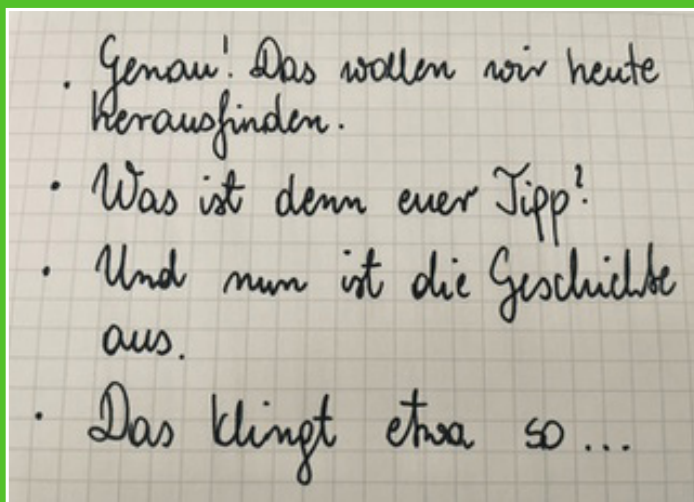 . Genau! Das wollen wir heute
herausfinden.
• Was ist denn euer Tipp?
• Und nun ist die Geschichte
aus.
• Das klingt etwa so...